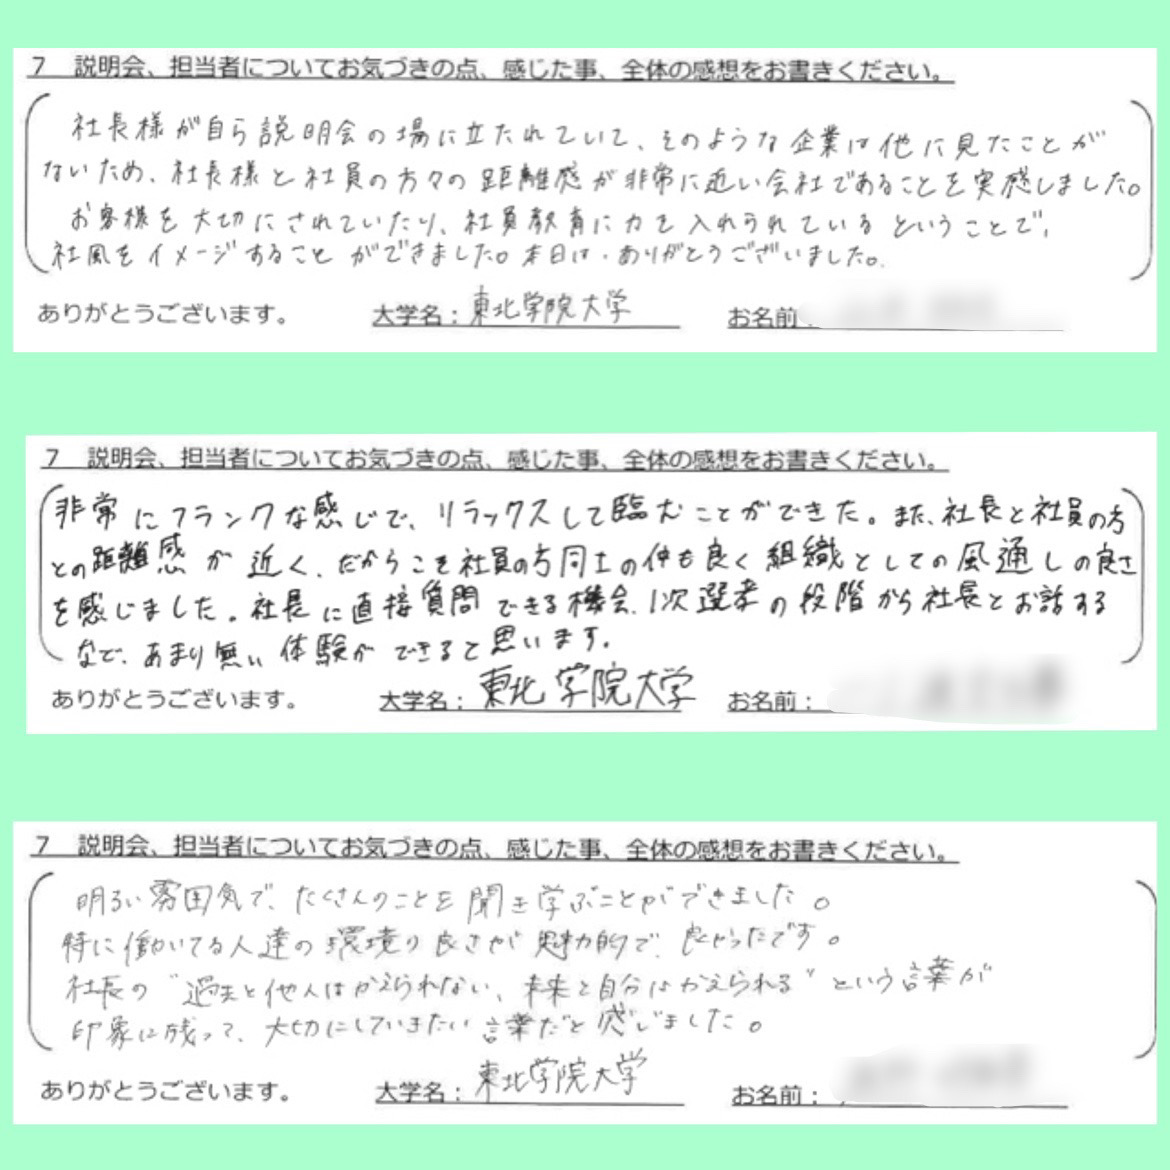 7　説明会、担当者についてお気づきの点、感じた事、全体の感想をお書きください。
社長様が自ら説明会の場に立たれていて、そのような企業は他に見たことが
ないため、社長様と社員の方々の距離感が非常に近い会社であることを実感しました。
お客様を大切にされていたり、社員教育に力を入れられているということで、
社風をイメージすることができました。本日は、ありがとうございました。
ありがとうございます。　大学名：東北学院大学　お名前：
7　説明会、担当者についてお気づきの点、感じた事、全体の感想をお書きください。
非常にフランクな感じで、リラックスして臨むことができた。また、社長と社員の方
との距離感が近く、だからこそ社員の方同士の仲も良く組織としての風通しの良さ
を感じました。社長に直接質問できる機会、1次選考の段階から社長とお話する
など、あまり無い体験ができると思います。
ありがとうございます。　大学名：東北学院大学　お名前：
7　説明会、担当者についてお気づきの点、感じた事、全体の感想をお書きください。
明るい雰囲気で、たくさんのことを聞き学ぶことができました。
特に働いてる人達の環境の良さが魅力的で、良かったです。
社長の"過去と他人はかえられない、未来と自分はかえられる"という言葉が
印象に残って、大切にしていきたい言葉だと感じました。
ありがとうございます。　大学名：東北学院大学　お名前：